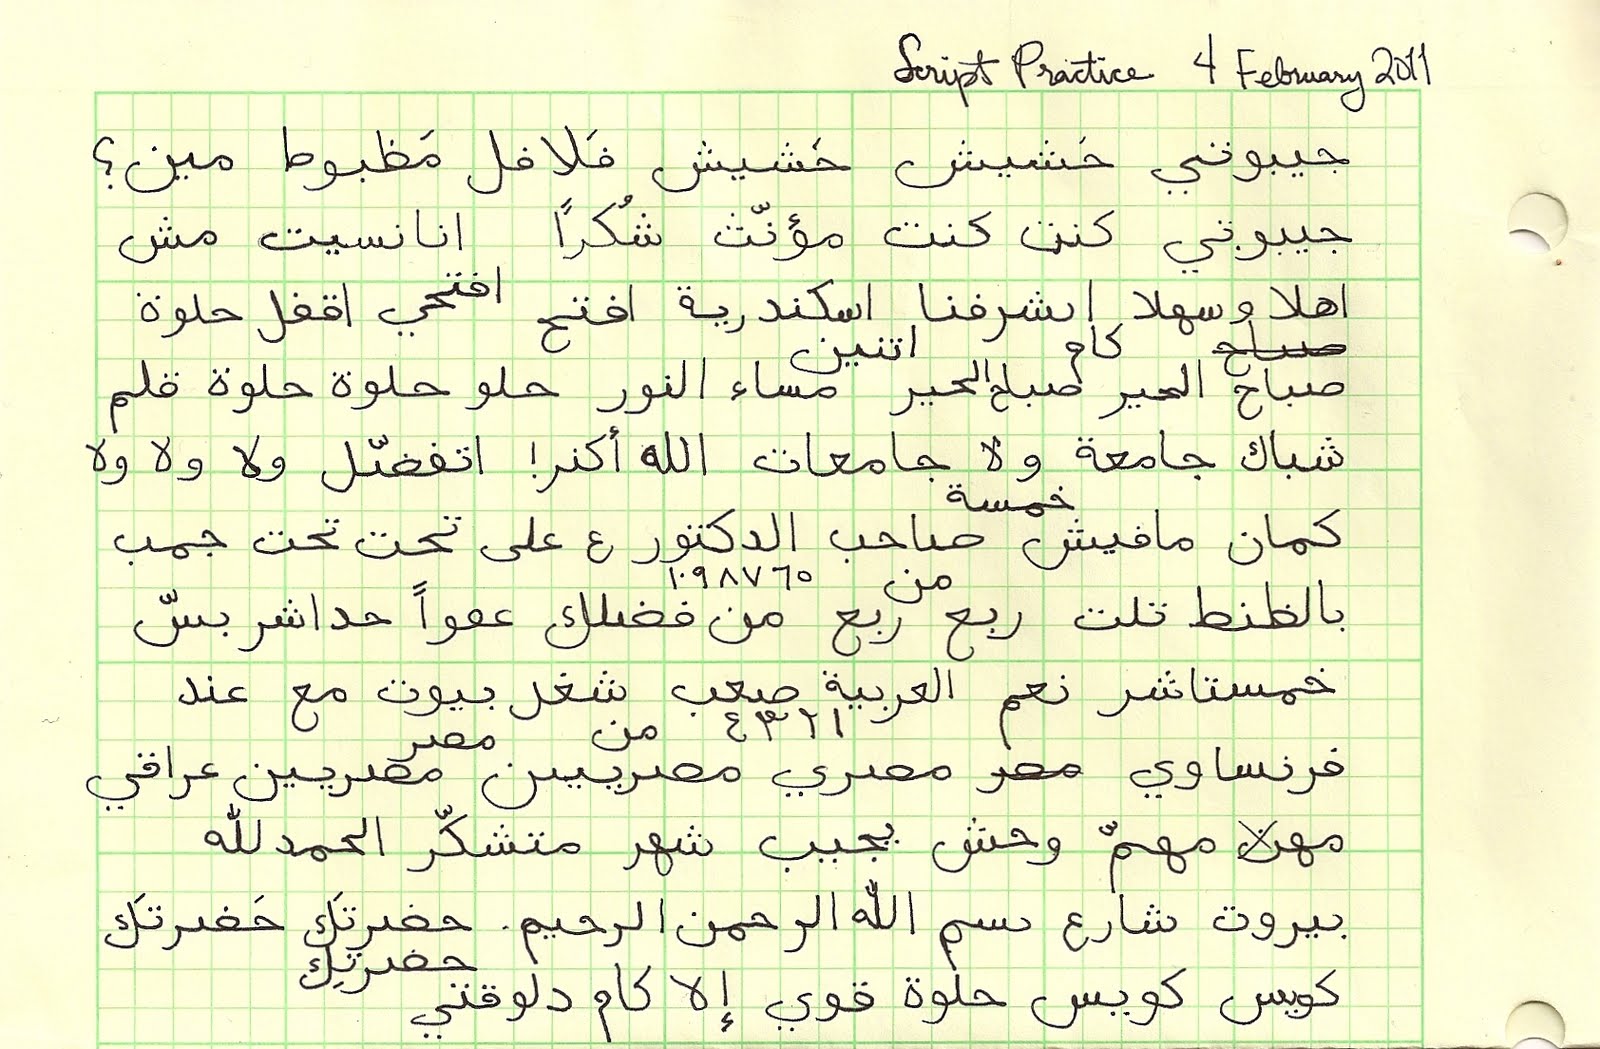 Script Practice 4 February 2011
جيبوتي حَشيش حَشيش فَلافل مَظبوط مين؟
جيبوتي كنت كنت مؤنّث شُكراً انا نسيت مش
افتحي
اهلا وسهلا اتشرفنا اسكندرية افتح اقفل حلوة
صباح كام اتنين
صباح الحير صباح الحير مساء النور حلو حلوة حلوة قلم
شباك جامعة ولا جامعات الله أكبر! اتفضّل ولا ولا ولا
خمسة
كمان مافيش صاحب الدكتور ع على تحت تحت جمب
من ١٠٩٨٧٦٥
بالظبط تلت ربع ربع من فضلك عفواً حداشر بسّ
خمستاشر نعم العربية صعب شغل بيوت مع عند
٤٣٢١ من مصر
فرنساوي مصر مصري مصريين مصريين عراقي
مهلا مهمّ وحش يجيب شهر متشكّر الحمد لله
بيروت شارع بسم الله الرحمن الرحيم. حضرتَك حَضرتَك
حضرتِك
كويس كويس حلوة قوي إلا كام دلوقتي